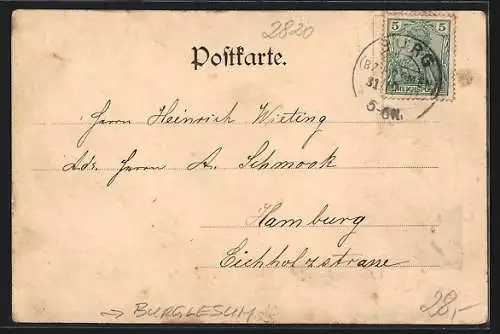 2820
Postkarte.
5 5
BURG
31
5-6N.
Herrn Heinrich Wieting
Adr. Herrn A. Schmook
Hamburg
Eichholzstrasse
→ BURGLESUM
28,-